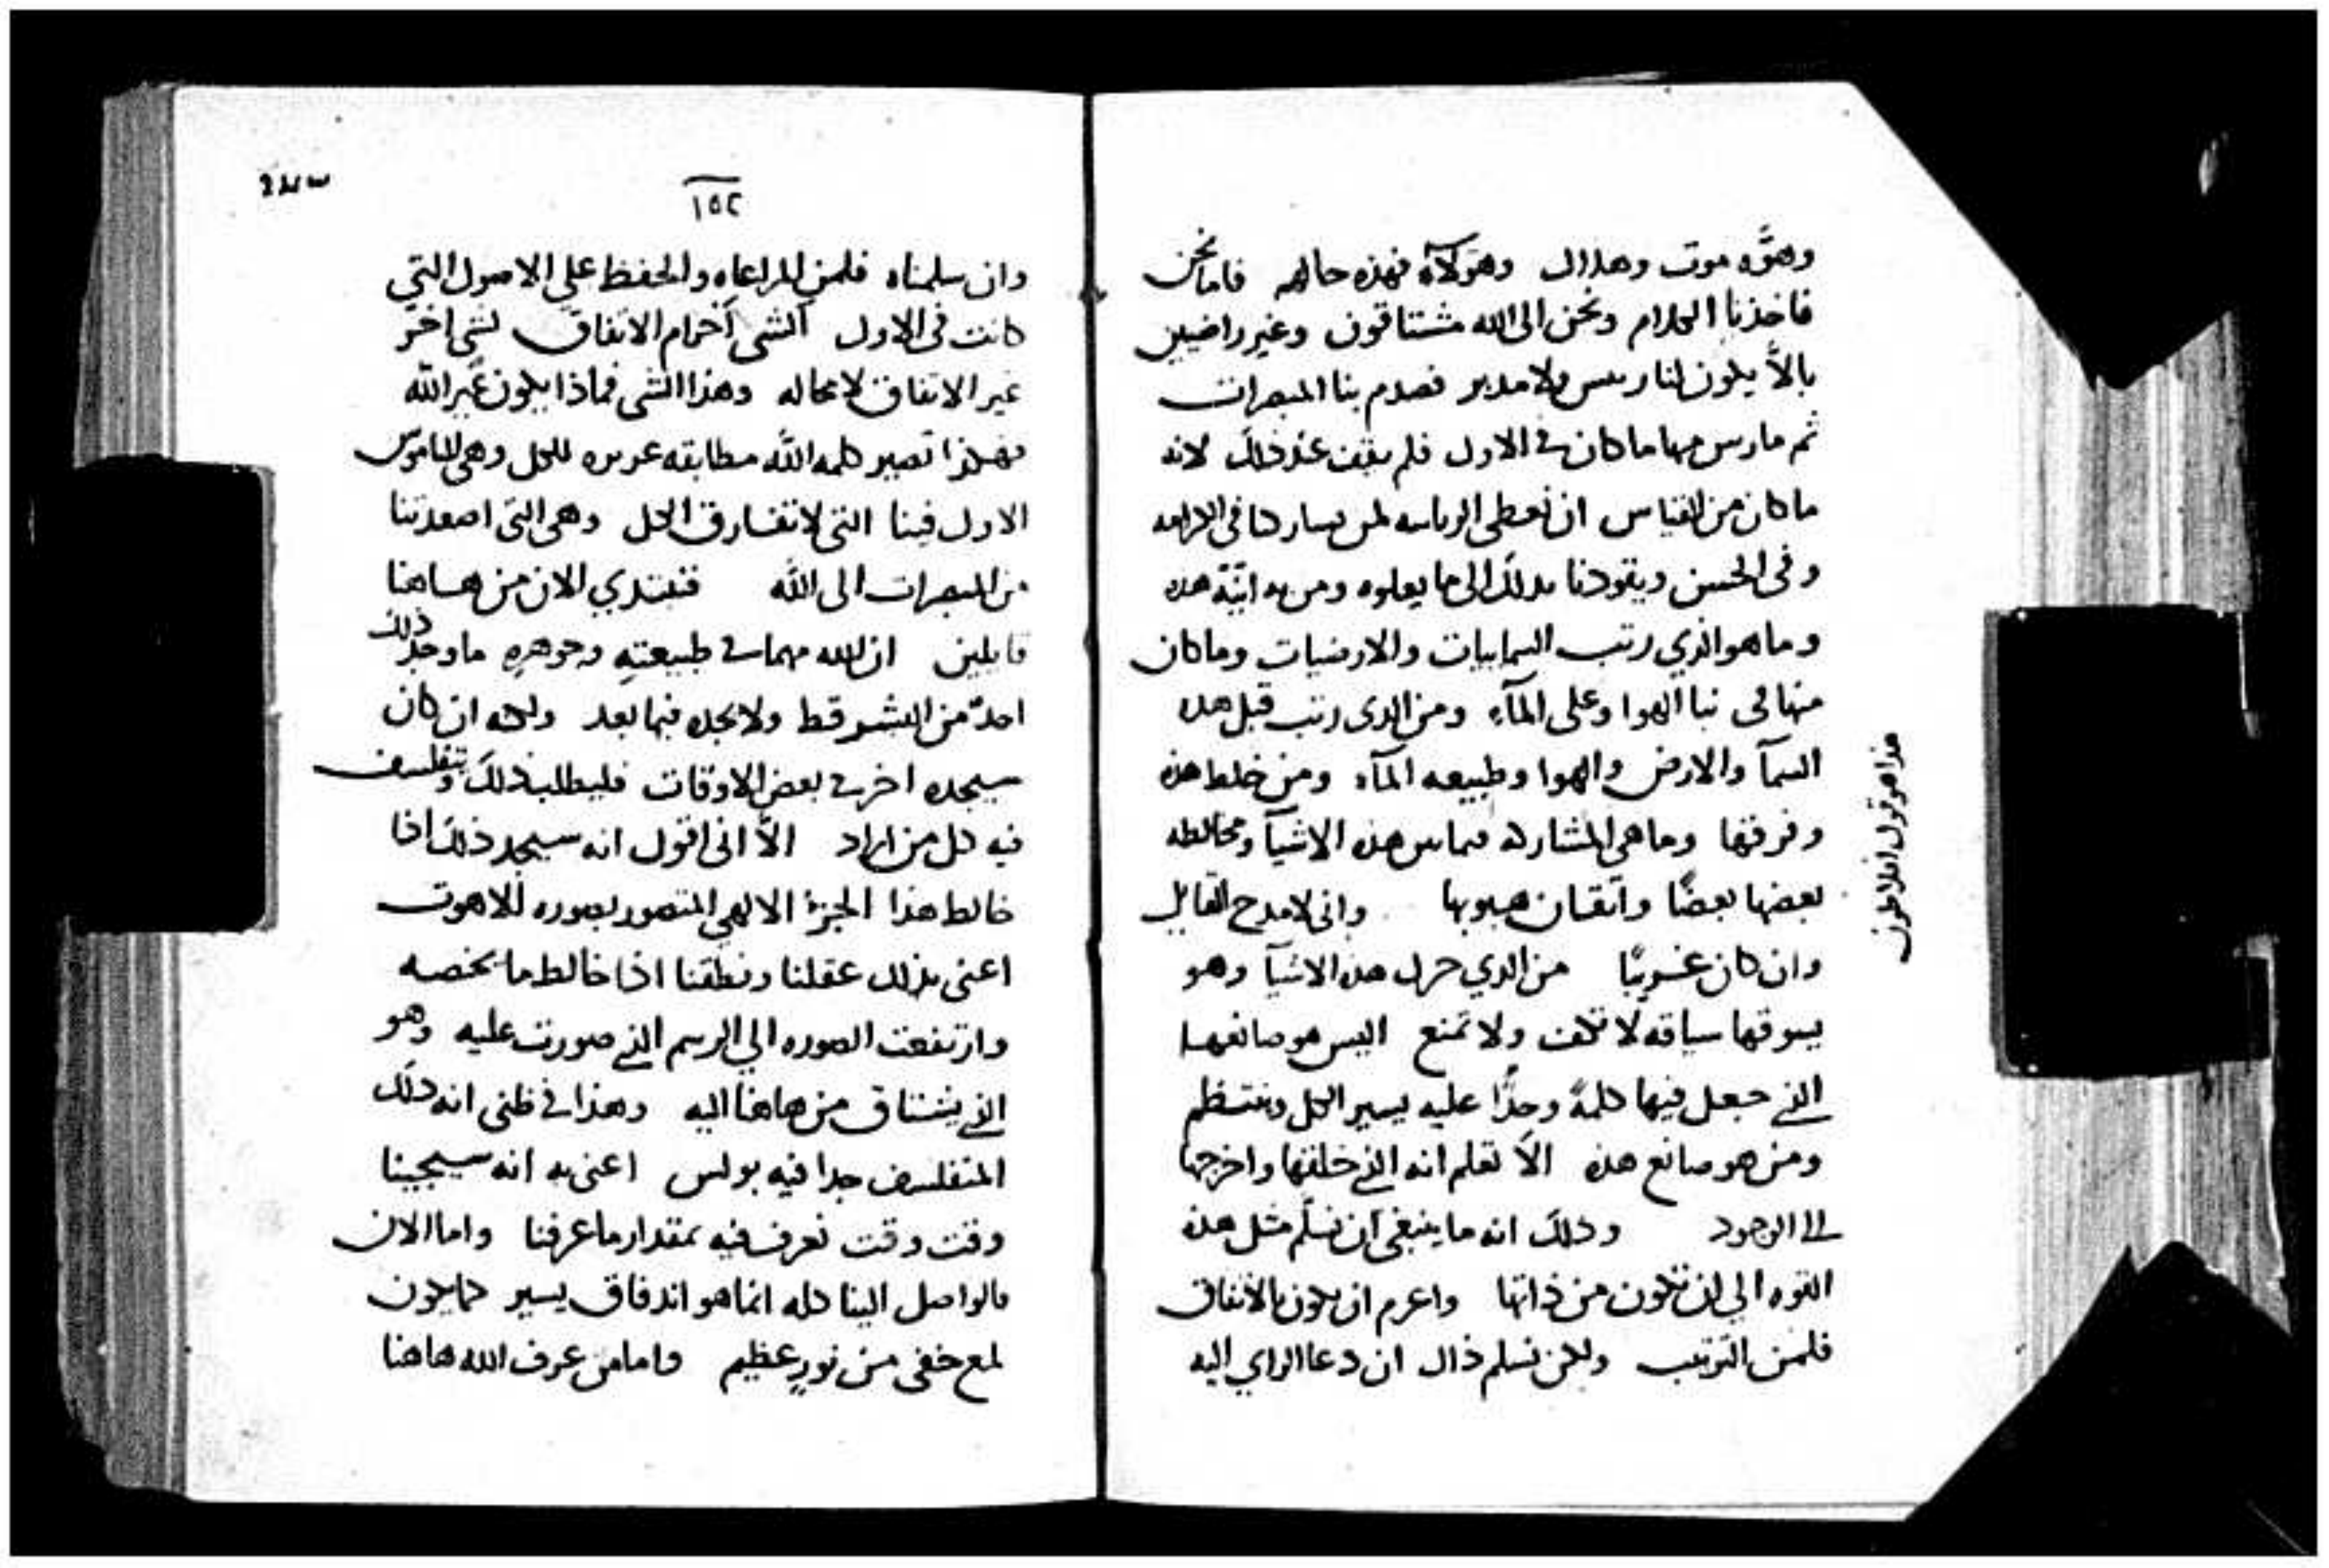 وهوّه موت وهلاك وهولآء فهذه حالهم فاما نحن
فاخذنا الكلام ونحن الى الله مشتاقون وغير راضيين
بالاّ يكون لنا ريس ولا مدبر فصدم بنا المبصرات
ثم مارس مهما ما كان في الاول فلم يقف عند ذلك لانه
ما كان من القياس ان نعطى الرياسه لمن يساركنا في الكرامه
وفى الحسن ويقودنا بذلك الى ما يعلوه ومن به انيّة هذه
وما هو الذي رتب السماييات والارضيات وما كان
منها فى الهوا وعلى المآء ومن الذى رتب قبل هذه
السمآ والارض والهوا وطبيعه المآء ومن خلط هذه
وفرقها وما هي المشاركه فيما بين هذه الاشيآ ومخالطه
بعضها بعضًا واتقان هبوبها وانى لامدح القايل
وان كان غريبًا من الذي حرك هذه الاشيآ وهو
يسوقها سياقه لا تكف ولا تمنع اليس هو صانعها
الذي جعل فيها كلمةً وحدًّا عليه يسير الكل وينتظم
ومن هو صانع هذه الاّ تعلم انه الذي خلقها واخرجها
الى الوجود وذلك انه ما ينبغى ان نسلّم مثل هذه
القوه الى ان تكون من ذاتها واعزم ان يكون بالاتفاق
فلمن الترتيب ولكن نسلم ذاك ان دعا الراي اليه
هذا هو قول افلاطون
١٥٢
وان سلمناه فلمن المراعاه والحفظ على الاصول التي
كانت فى الاول ألشى آخر ام الاتفاق لشى اخر
غير الاتفاق لا محاله وهذا الشى فماذا يكون غير الله
فهكذا تصير كلمه الله مطابقه للكل وهى الناموس
الاول فينا التى لا تفارق الكل وهى التى اصعدتنا
من المبصرات الى الله فنبتدي الان من هاهنا
قايلين ان الله مهما في طبيعتهِ وجوهرهِ ما وجد ذلك
احدٌ من البشر قط ولا يجده فيما بعد ولكنه ان كان
سيجده اخر في بعض الاوقات فليطلب ذلك ويتفلسف
فيه كل من اراد الاّ انى اقول انه سيجد ذلك اذا
خالط هذا الجزء الالهي المتصور بصوره اللاهوت
اعنى بذلك عقلنا ونطقنا اذا خالط ما يخصه
وارتفعت الصوره الى الرسم الذي صورت عليه وهو
الذي يشتاق من هاهنا اليه وهذا في ظنى انه ذلك
المتفلسف جدا فيه بولس اعنى به انه سيجينا
وقت وقت نعرف فيه بمقدار ما عرفنا واما الان
فالواصل الينا كله انما هو اندفاق يسير كما يكون
لمع خفى من نورٍ عظيم واما من عرف الله هاهنا